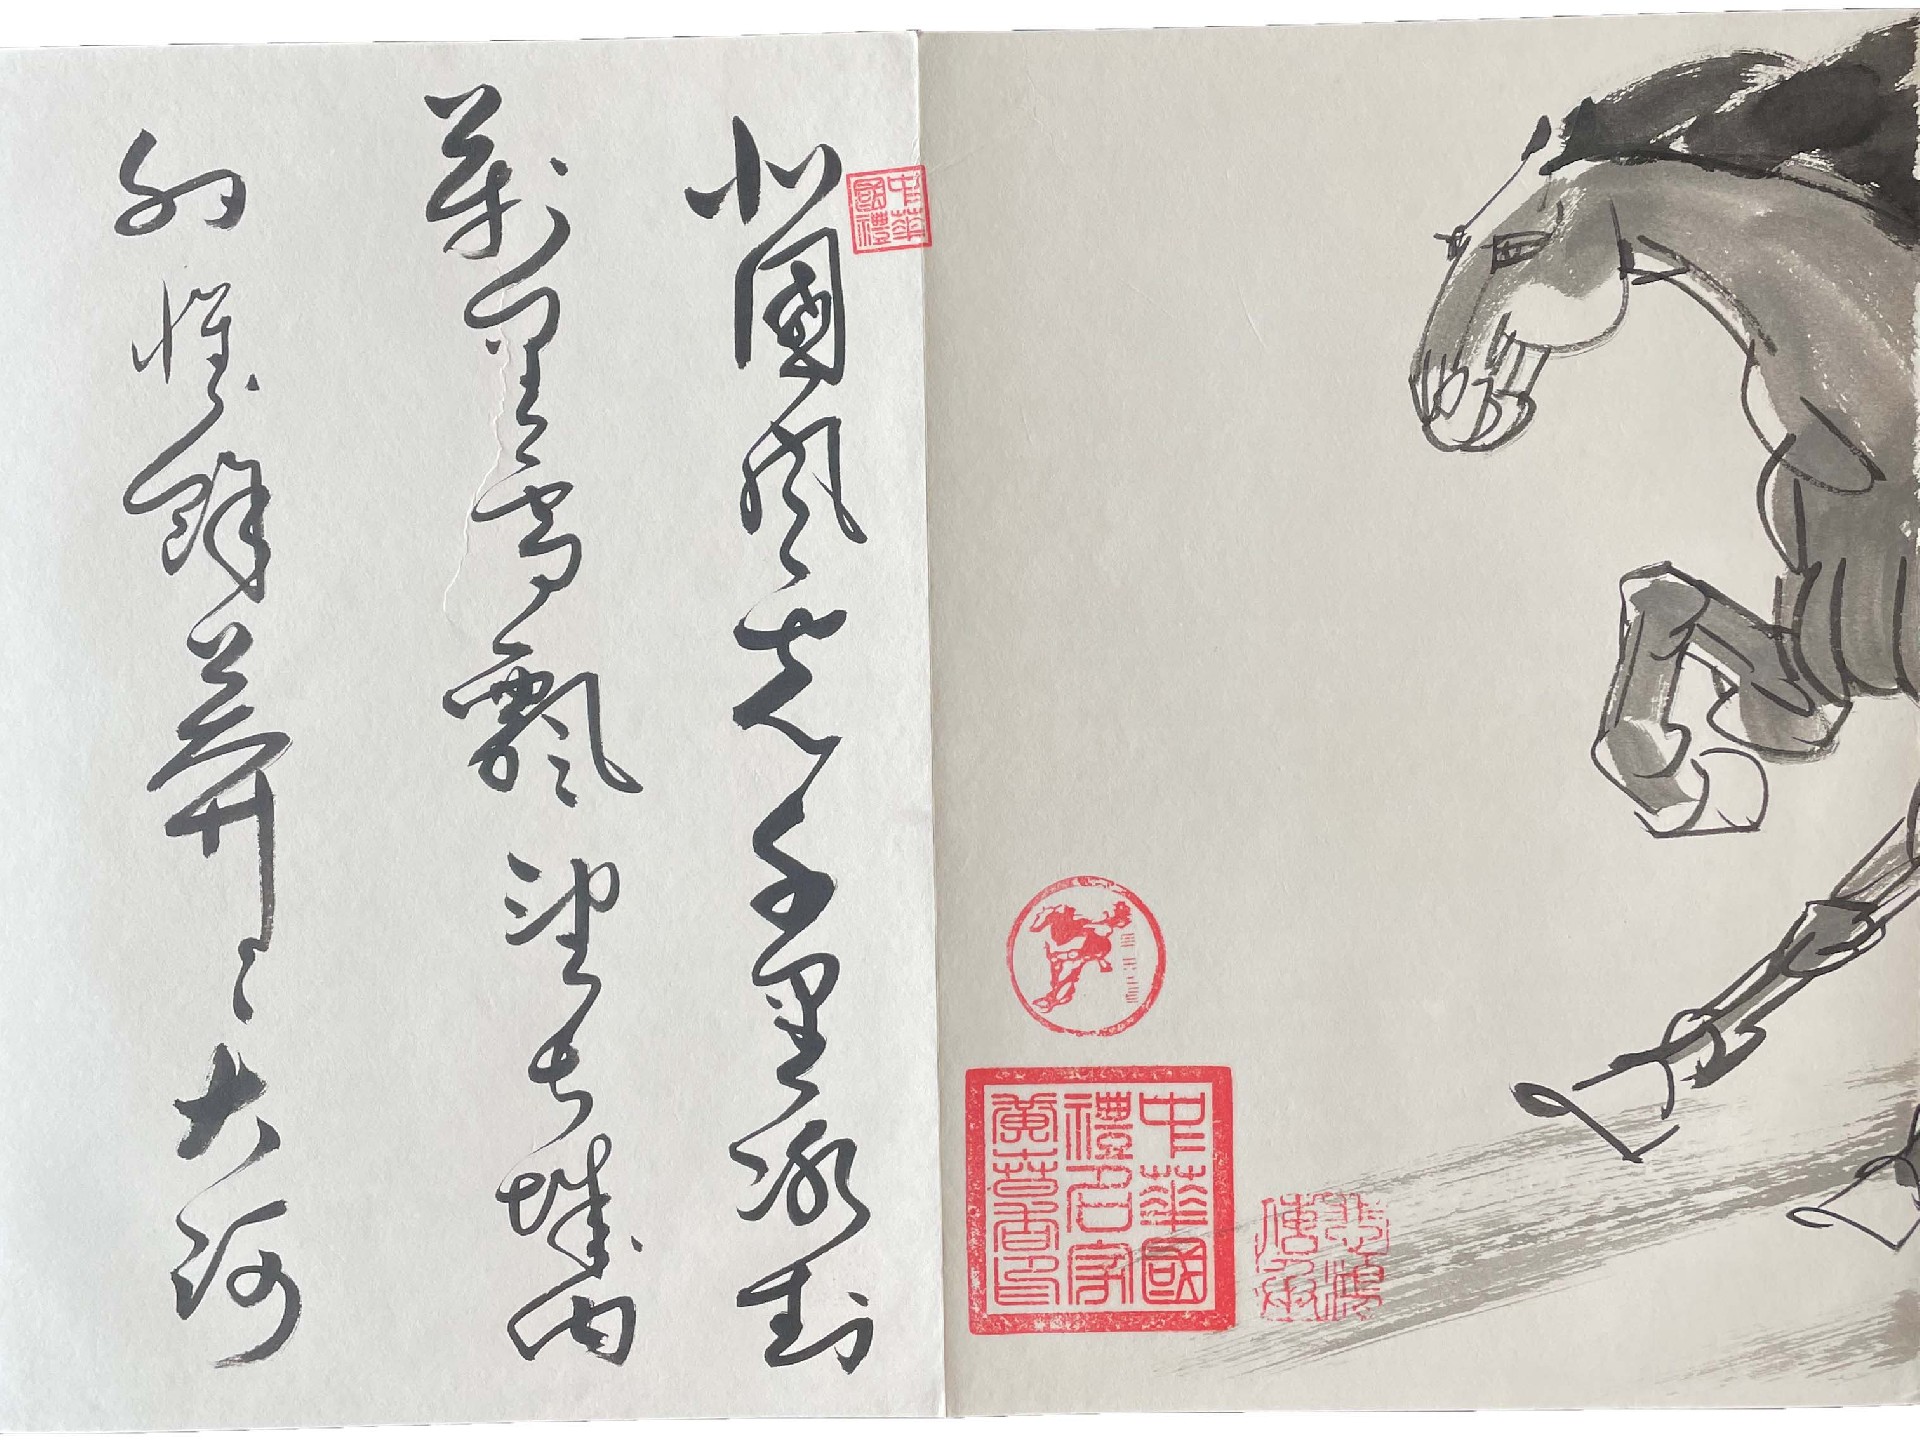 北國風光千里冰封
萬里雪飄望長城內
外惟餘莽〻大河
中華
國禮
中華國
禮名家
黃苔香印
悲鴻